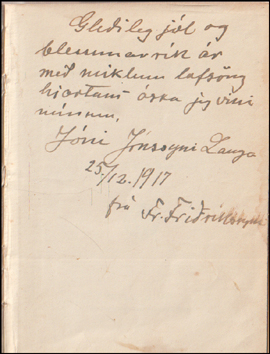 Gleðileg jól og
blessunarrík ár
með miklum lofsöng
hjartans óska jeg vini
mínum,
Jóni Jónssyni Langa
25/12. 1917
frá Fr. Friðrikssyni